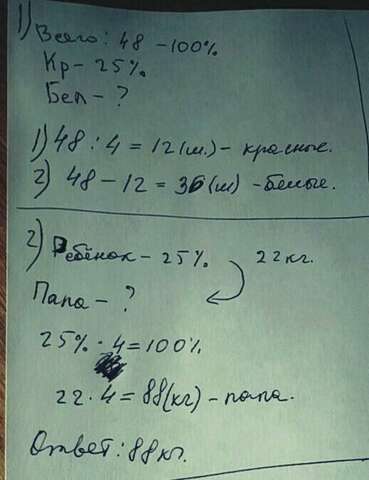 1) Всего: 48 - 100%
Кр - 25%.
Бел - ?
1) 48 : 4 = 12 (м.) - красные.
2) 48 - 12 = 36 (м) - белые.
2) Ребёнок - 25%. 22 кг.
Папа - ?
25% · 4 = 100%.
22 · 4 = 88 (кг) - папа.
Ответ: 88 кг.